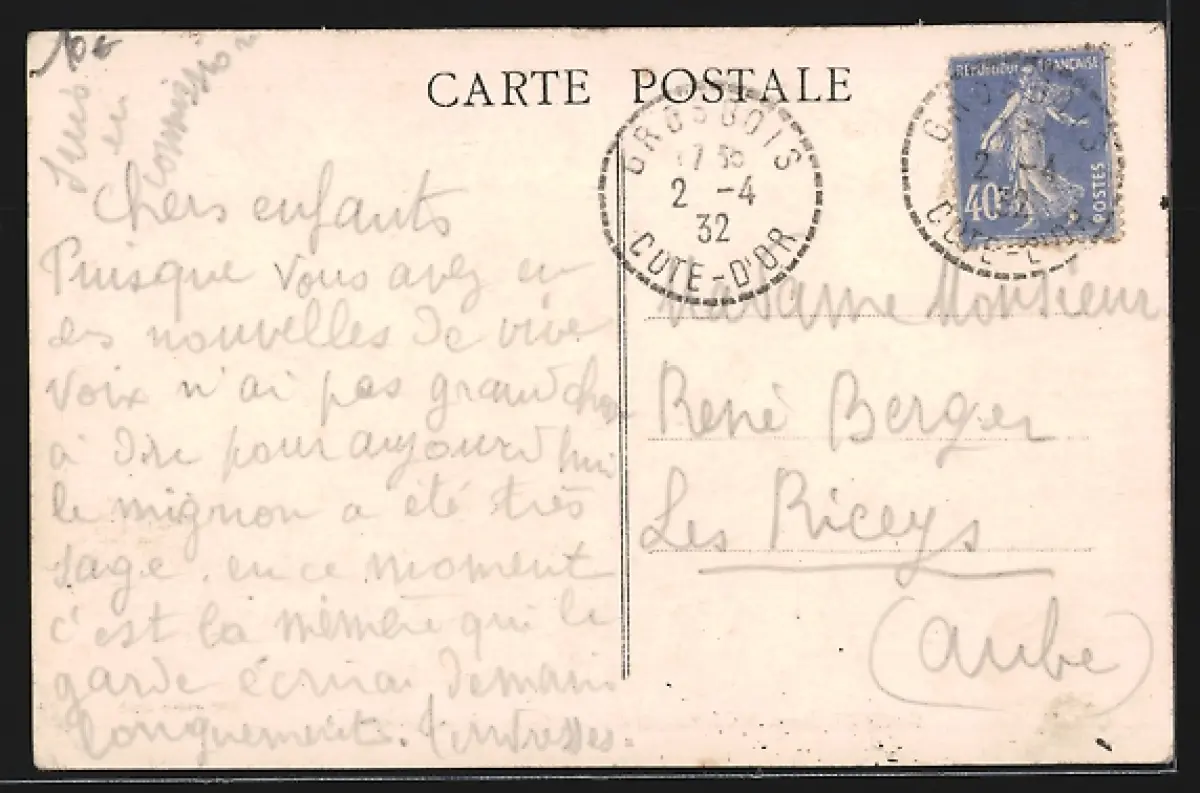 10 €
Suis
en
commission
CARTE POSTALE
Chers enfants
Puisque vous avez eu
des nouvelles de vive
voix n'ai pas grand chose
à dire pour aujourd'hui
le mignon a été très
sage. en ce moment
c'est la mémère qui le
garde écrirai demain
longuement. Tendresses.
GROSBOIS
17 30
2 -4
32
COTE-D'OR
REPUBLIQUE FRANÇAISE
40c
POSTES
GROSBOIS
2 -4
32
COTE-D'OR
Madame Monsieur
René Berger
Les Riceys
(Aube)